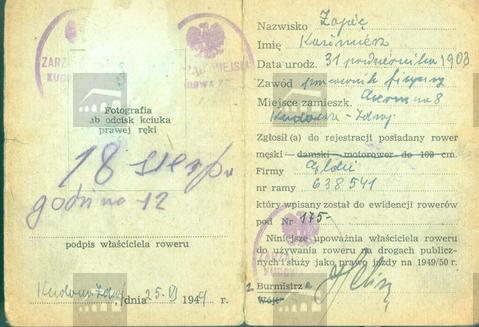 Fotografia
lub odcisk kciuka
prawej ręki
18 sierpn
godzina 12
podpis właściciela roweru
Kudowa Zdrój dnia 25. VI 1949 r.
Nazwisko Zając
Imię Kazimierz
Data urodz. 31 października 1908
Zawód pracownik fizyczny
Miejsce zamieszk. 8
Kudowa-Zdrój
Zgłosił (a) do rejestracji posiadany rower
męski — damski — motorower do 100 cm.
Firmy
nr ramy 638541
który wpisany został do ewidencji rowerów
pod Nr 175-
Niniejsze upoważnia właściciela roweru
do używania roweru na drogach publicz-
nych i służy jako prawo jazdy na 1949/50 r.
Burmistrz
Wójt